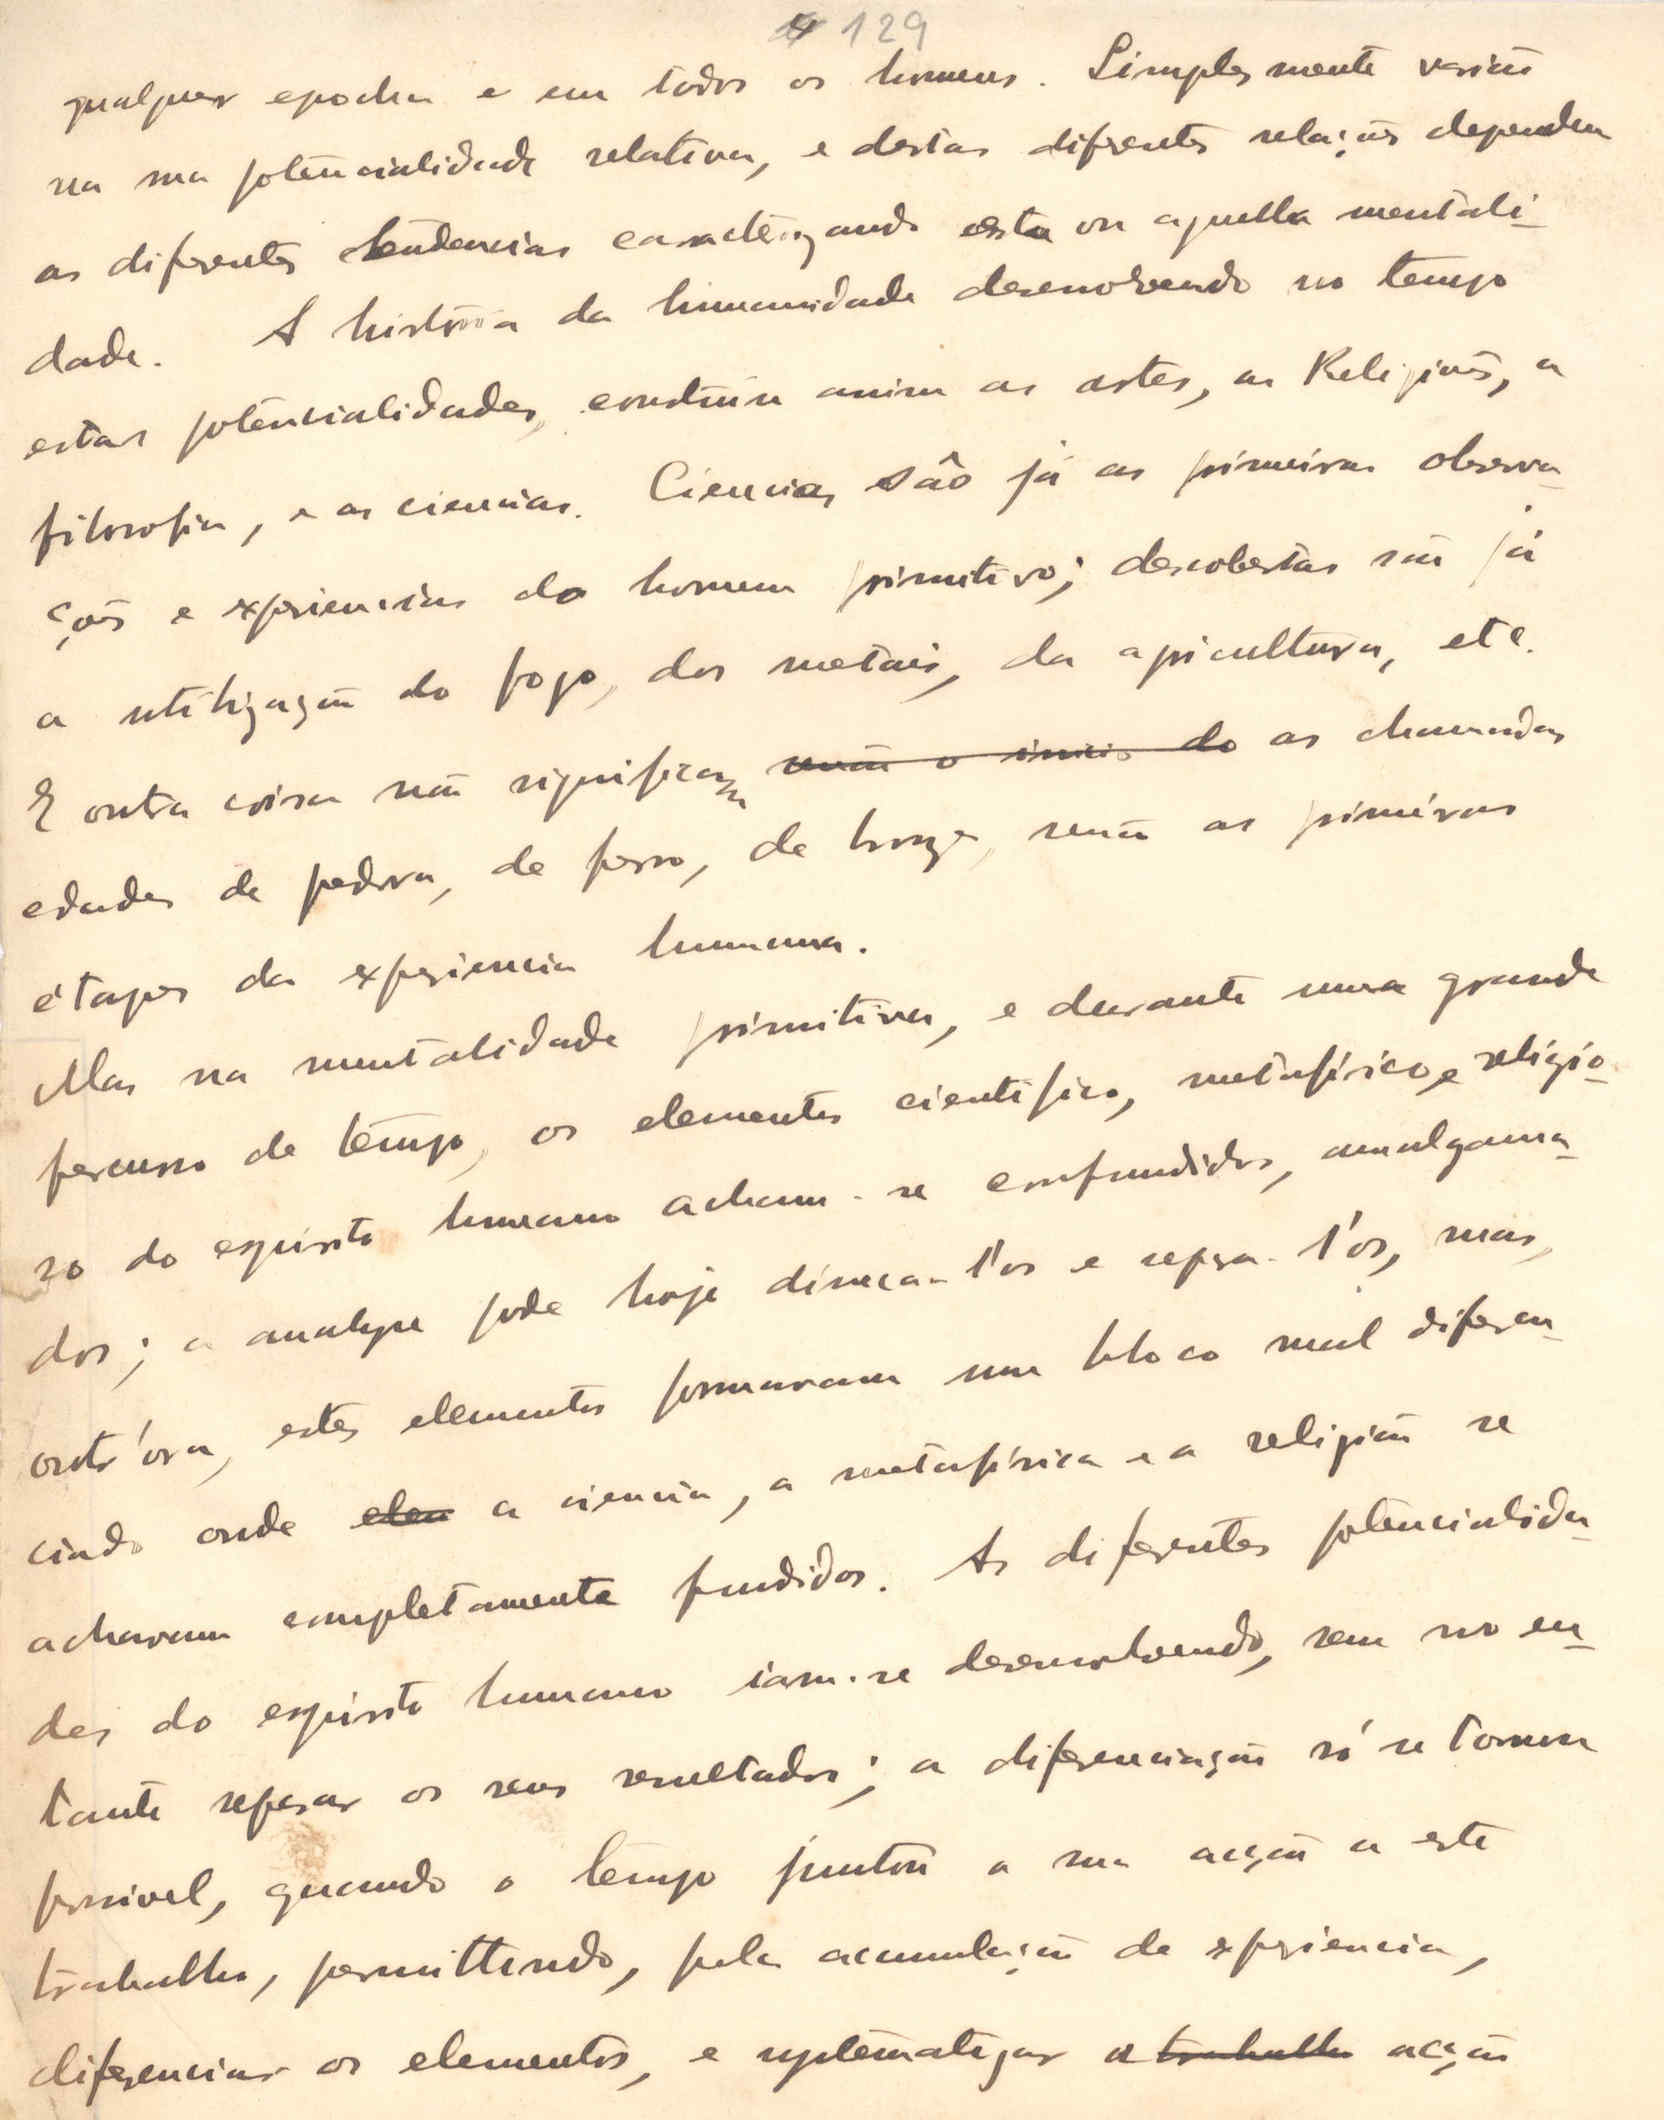 129
qualquer epocha e em todos os homens. Simplesmente variam
na sua potencialidade relativa, e destas diferentes relações dependem
as diferentes tendencias caracterizando esta ou aquella mentali-
dade. A história da humanidade desenvolvendo no tempo
estas potencialidades, construiu assim as artes, as Religiões, a
filosofia, e as ciencias. Ciencias são já as primeiras observa-
ções e experiencias do homem primitivo; descobertas são já
a utilização do fogo, dos metais, da apicultura, etc.
E outra coisa não significam senão o inicio do as chamadas
edades de pedra, de ferro, de bronze, senão as primeiras
étapes da experiencia humana.
Mas na mentalidade primitiva, e durante uma grande
percurso de tempo, os elementos cientifico, metafísico, e religio-
so do espirito humano acham-se confundidos, amalgama-
dos; a analyse pode hoje disseca-l'os e separa-l'os, mas,
outr'ora, estes elementos formavam um bloco mal diferen-
ciado onde eles a ciencia, a metafísica e a religião se
achavam completamente fundidos. As diferentes potencialida-
des do espirito humano iam-se desenvolvendo, sem no en-
tanto separar os seus resultados; a diferenciação só se tornou
possivel, quando o tempo juntou a sua acção a este
trabalho, permittindo, pela acumulação de experiencia,
diferenciar os elementos, e systematizar o trabalho acção